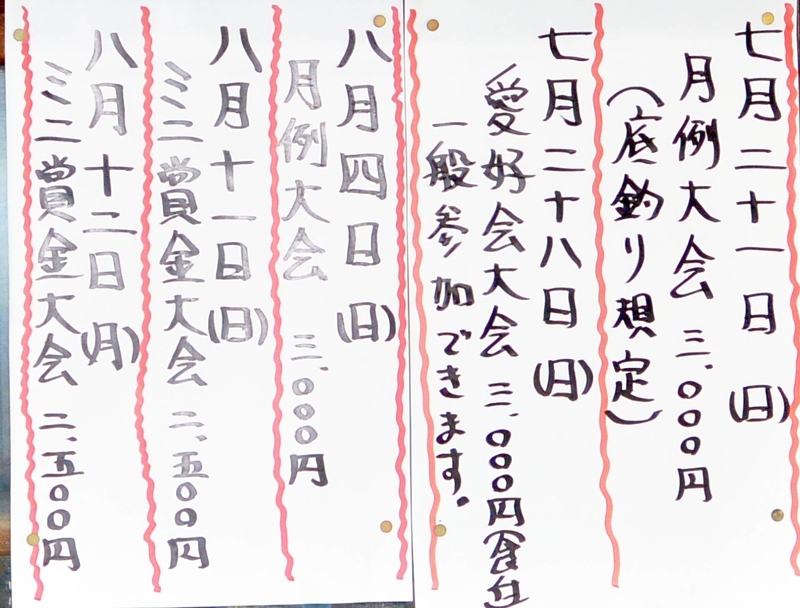 七月二十一日(日)
月例大会 三、〇〇〇円
(底釣り規定)
七月二十八日(日)
愛好会大会 三、〇〇〇円食付
一般参加できます。
八月四日(日)
月例大会 三、〇〇〇円
八月十一日(日)
ミニ賞金大会 二、五〇〇円
八月十二日(月)
ミニ賞金大会 二、五〇〇円